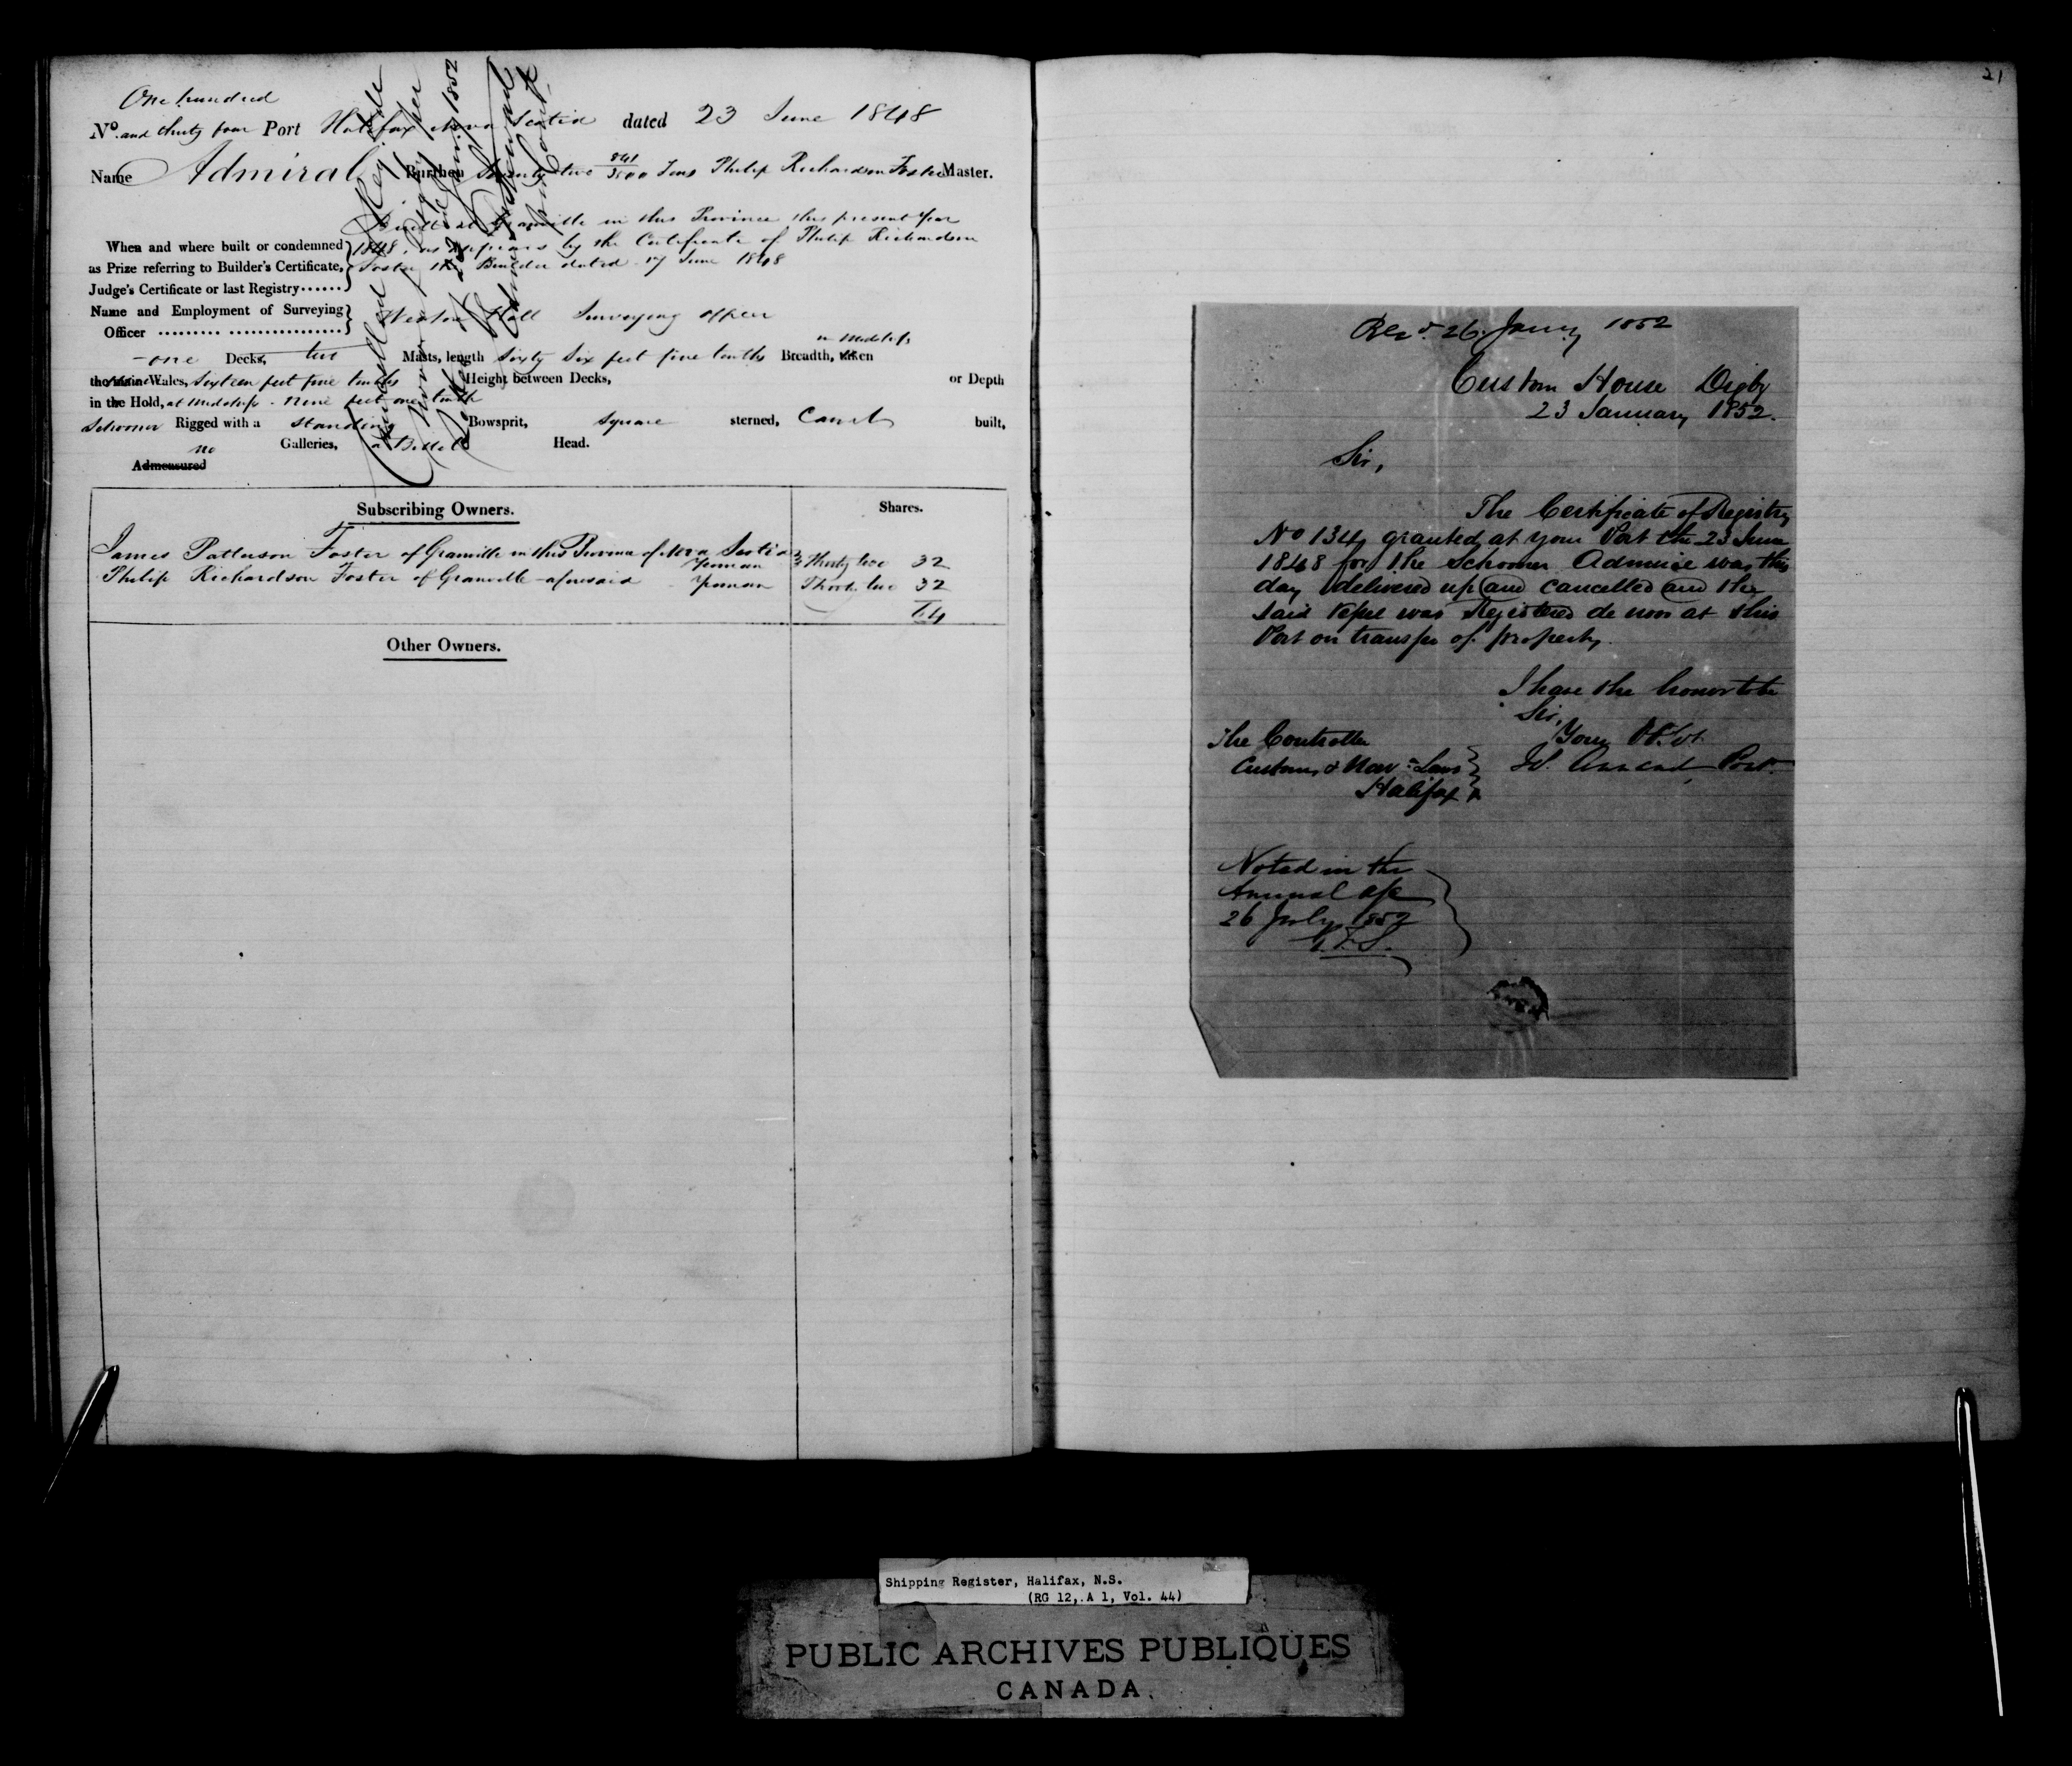 21
One hundred
No. and thirty four Port Halifax Nova Scotia dated 23 June 1848
Name Admiral Burthen Seventy two 841/3500 Tons Philip Richardson Foster Master.
When and where built or condemned as Prize referring to Builder's Certificate, Judge's Certificate or last Registry......
Built at Granville in this Province this present Year
1848, as appears by the Certificate of Philip Richardson
Foster the Builder dated 17 June 1848
Name and Employment of Surveying Officer
Hall Surveying Officer
one Decks, two Masts, length Sixty Six feet five tenths Breadth, taken in Midships
the main Wales, Sixteen feet five tenths Height between Decks, or Depth
in the Hold, at Midships - nine feet one tenth
Schooner Rigged with a Standing Bowsprit, Square sterned, Carvel built,
no Galleries, a Billet Head.
Admeasured
Cancelled Registered de
Novo
Digby
1852
Subscribing Owners. Shares.
James Patterson Foster of Granville in this Province of Nova Scotia Yeoman Thirty two 32
Philip Richardson Foster of Granville aforesaid Yeoman Thirty two 32
64
Other Owners.
Recd. 26 Jany 1852
Custom House Digby
23 January 1852.
Sir,
The Certificate of Registry
No 134, granted at your Port the 23 June
1848 for the Schooner Admiral was this
day delivered up and cancelled and the
said Vessel was Registered de novo at this
Port on transfer of property.
I have the honor to be
Sir,
Your Obt. St.
The Controller
Customs & Navn. Laws
Halifax
Noted in the
Annual a/c
26 July 1852
Shipping Register, Halifax, N.S.
(RG 12, A 1, Vol. 44)
PUBLIC ARCHIVES PUBLIQUES
CANADA